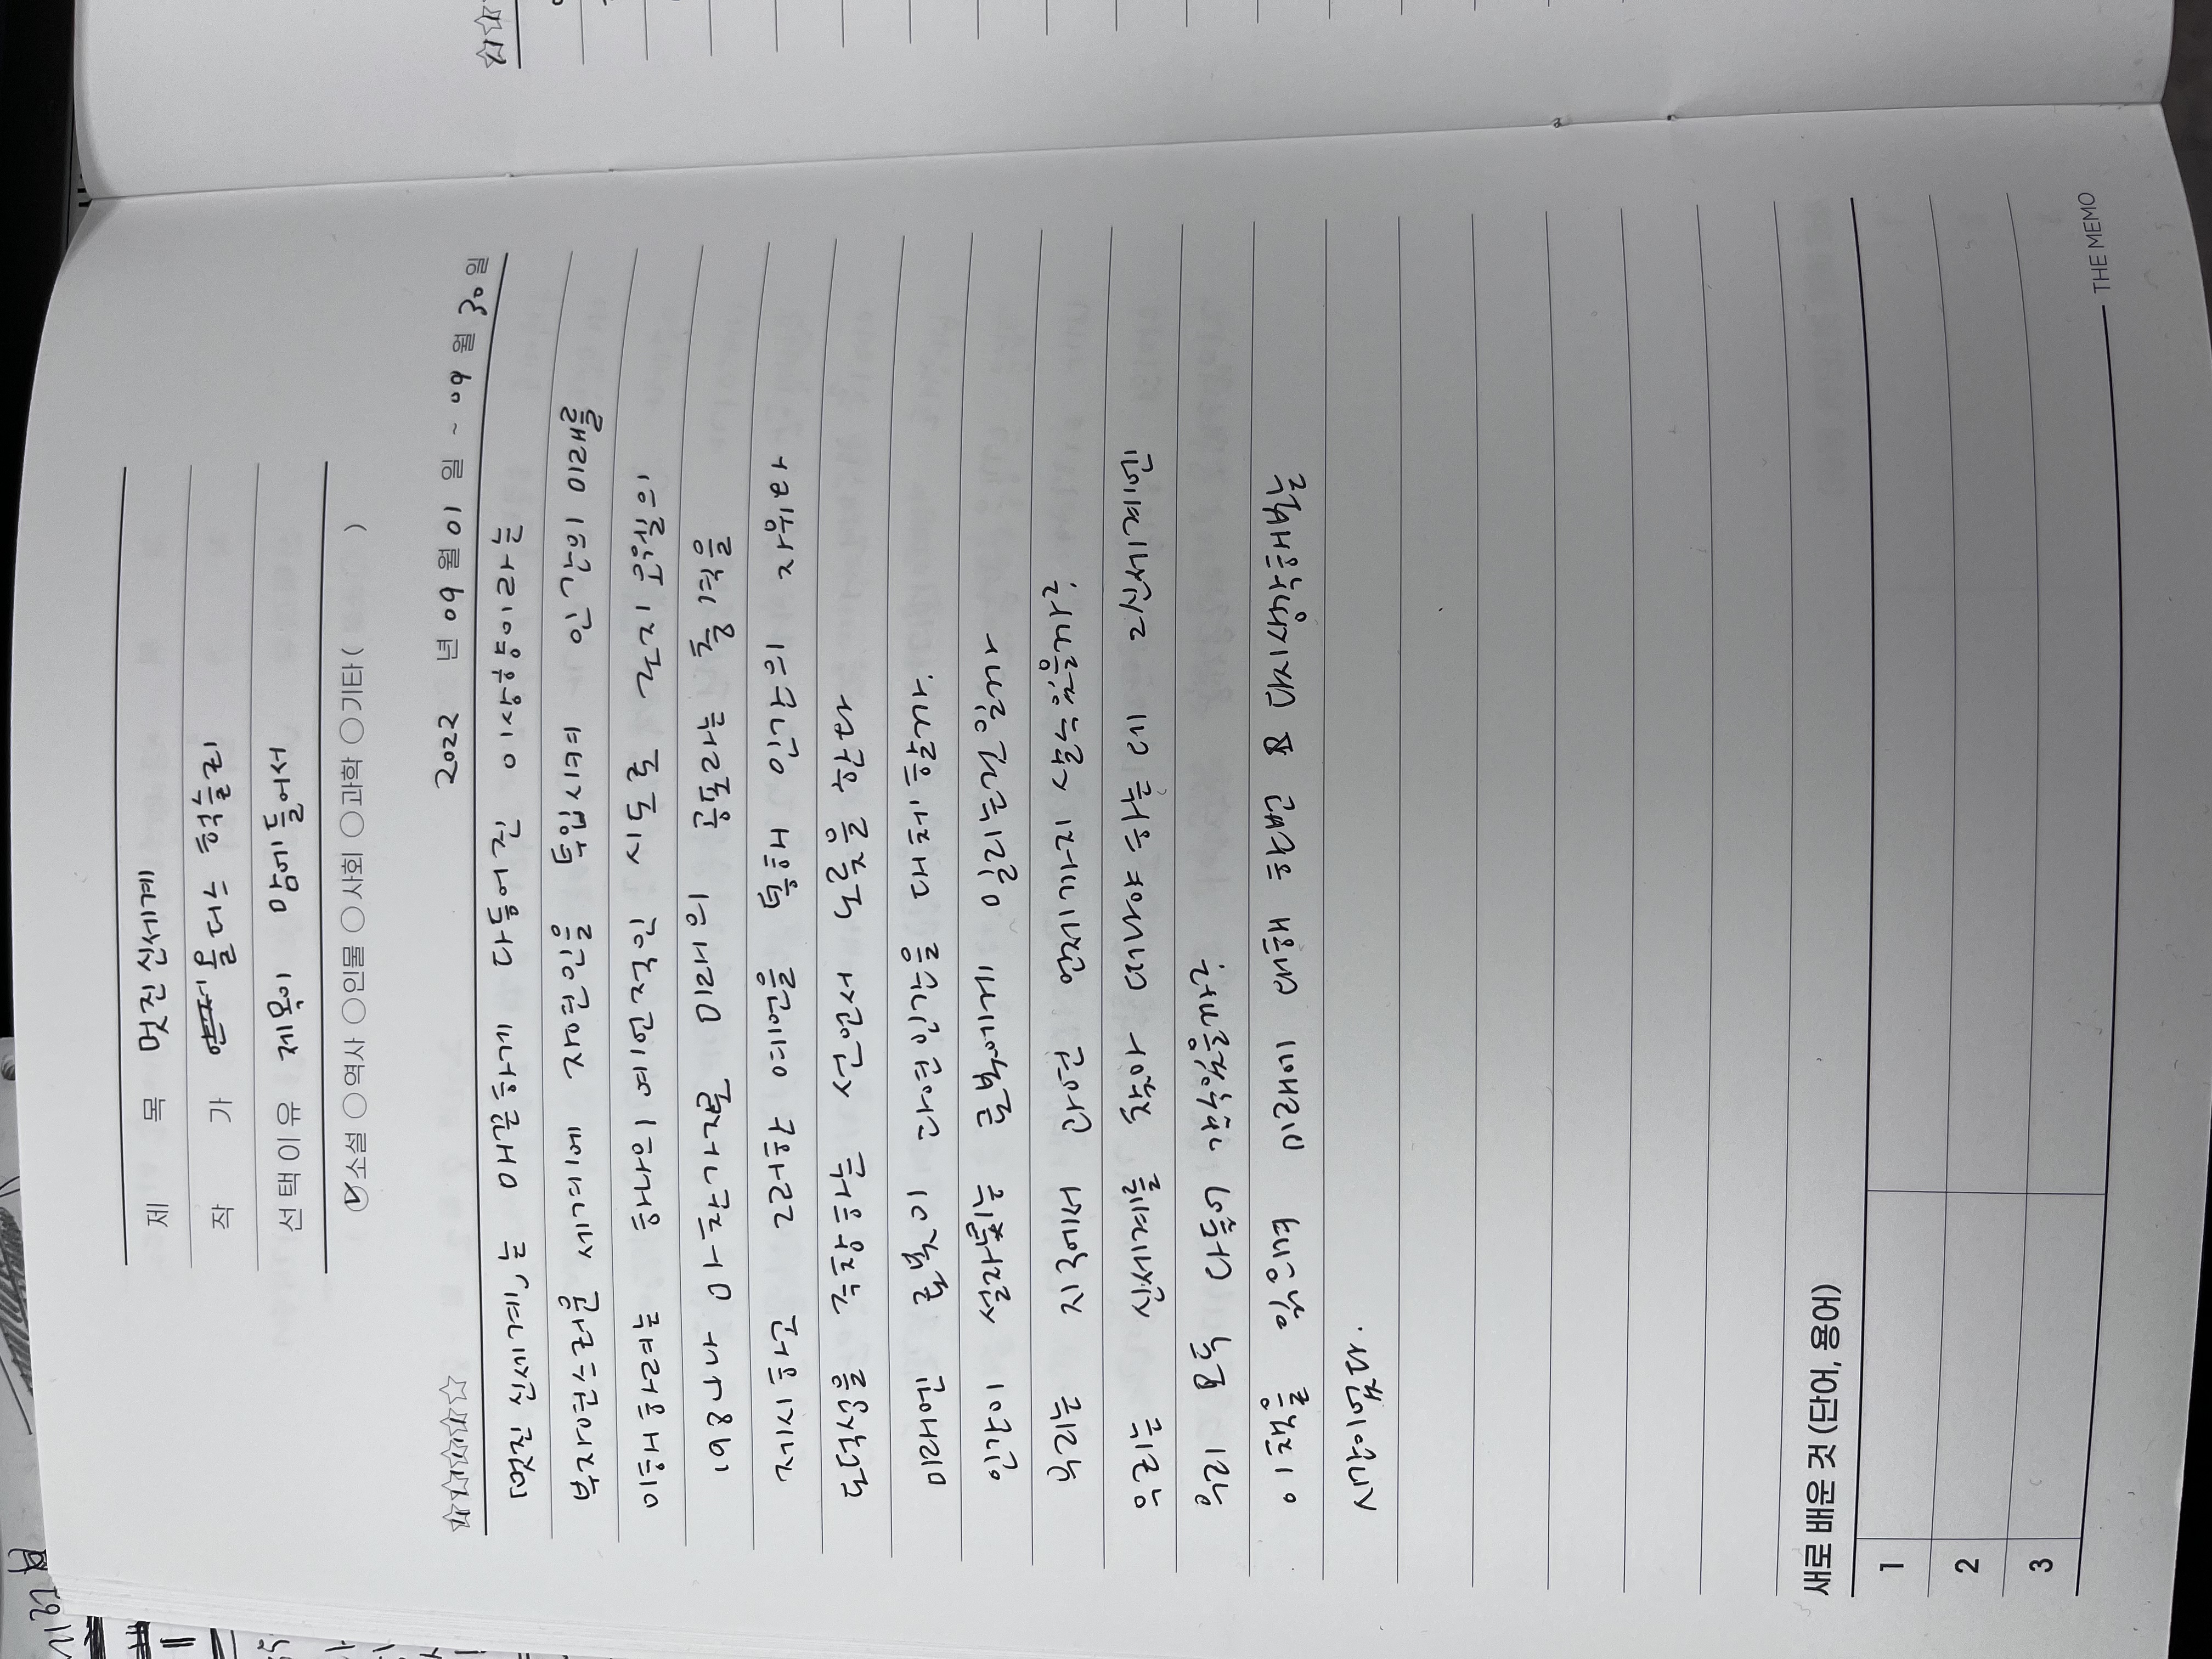 제 목 멋진 신세계
작 가 올더스 헉슬리
선택이유 제목이 맘에 들어서
소설 역사 인물 사회 과학 기타 ( )
2022 년 09 월 01 일 ~ 09 월 30 일
「멋진 신세계」는 매끈하게 다듬어진 이상향이라는
부자연스러운 세계에 자연인을 투입시켜 인간의 미래를
이해하려는 하나의 예언적인 시도로 조지 오웰의
1984나 마찬가지로 미래의 공포라는 충격을
제시하고 그러한 예언을 통해 인간의 자위와
도덕성을 주창하는 선언서 노릇을 한다
미래엔 로봇이 과연 인간을 대체 할까.
인간이 로봇에게 밀리는건 일까
우리는 지구에서 과연 언제까지 살수있을까?
우리는 신세계를 찾아 떠나야 하는데 그신세계엔
우리 모두 다들어 갈수있을까?
이 책을 읽으며 미래에 대해 한번 다시생각해보는
시간이었다.
새로 배운 것 (단어, 용어)
1
2
3
THE MEMO